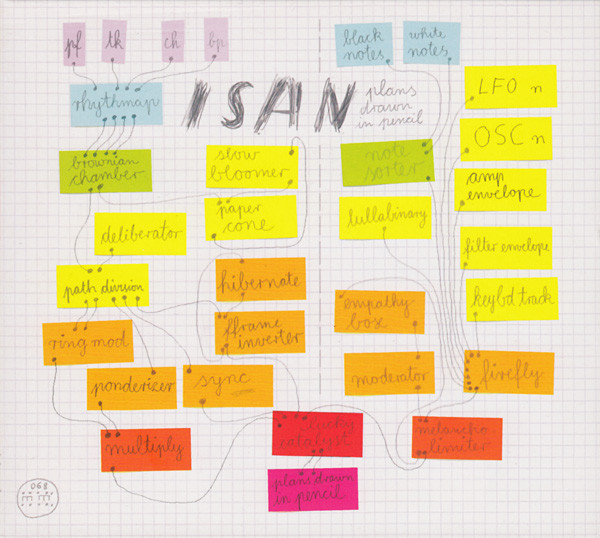 pf
tk
ch
bp
black
notes
white
notes
rhythmap
ISAN
plans
drawn
in pencil
LFO n
OSC n
brownian
chamber
slow
bloomer
note
sorter
amp
envelope
paper
cone
lullabinary
deliberator
filter envelope
path division
hibernate
keybd track
empathy
box
ring mod
fframe
inverter
ponderizer
sync
moderator
firefly
multiply
lucky
catalyst
melancho
limiter
plans drawn
in pencil
068